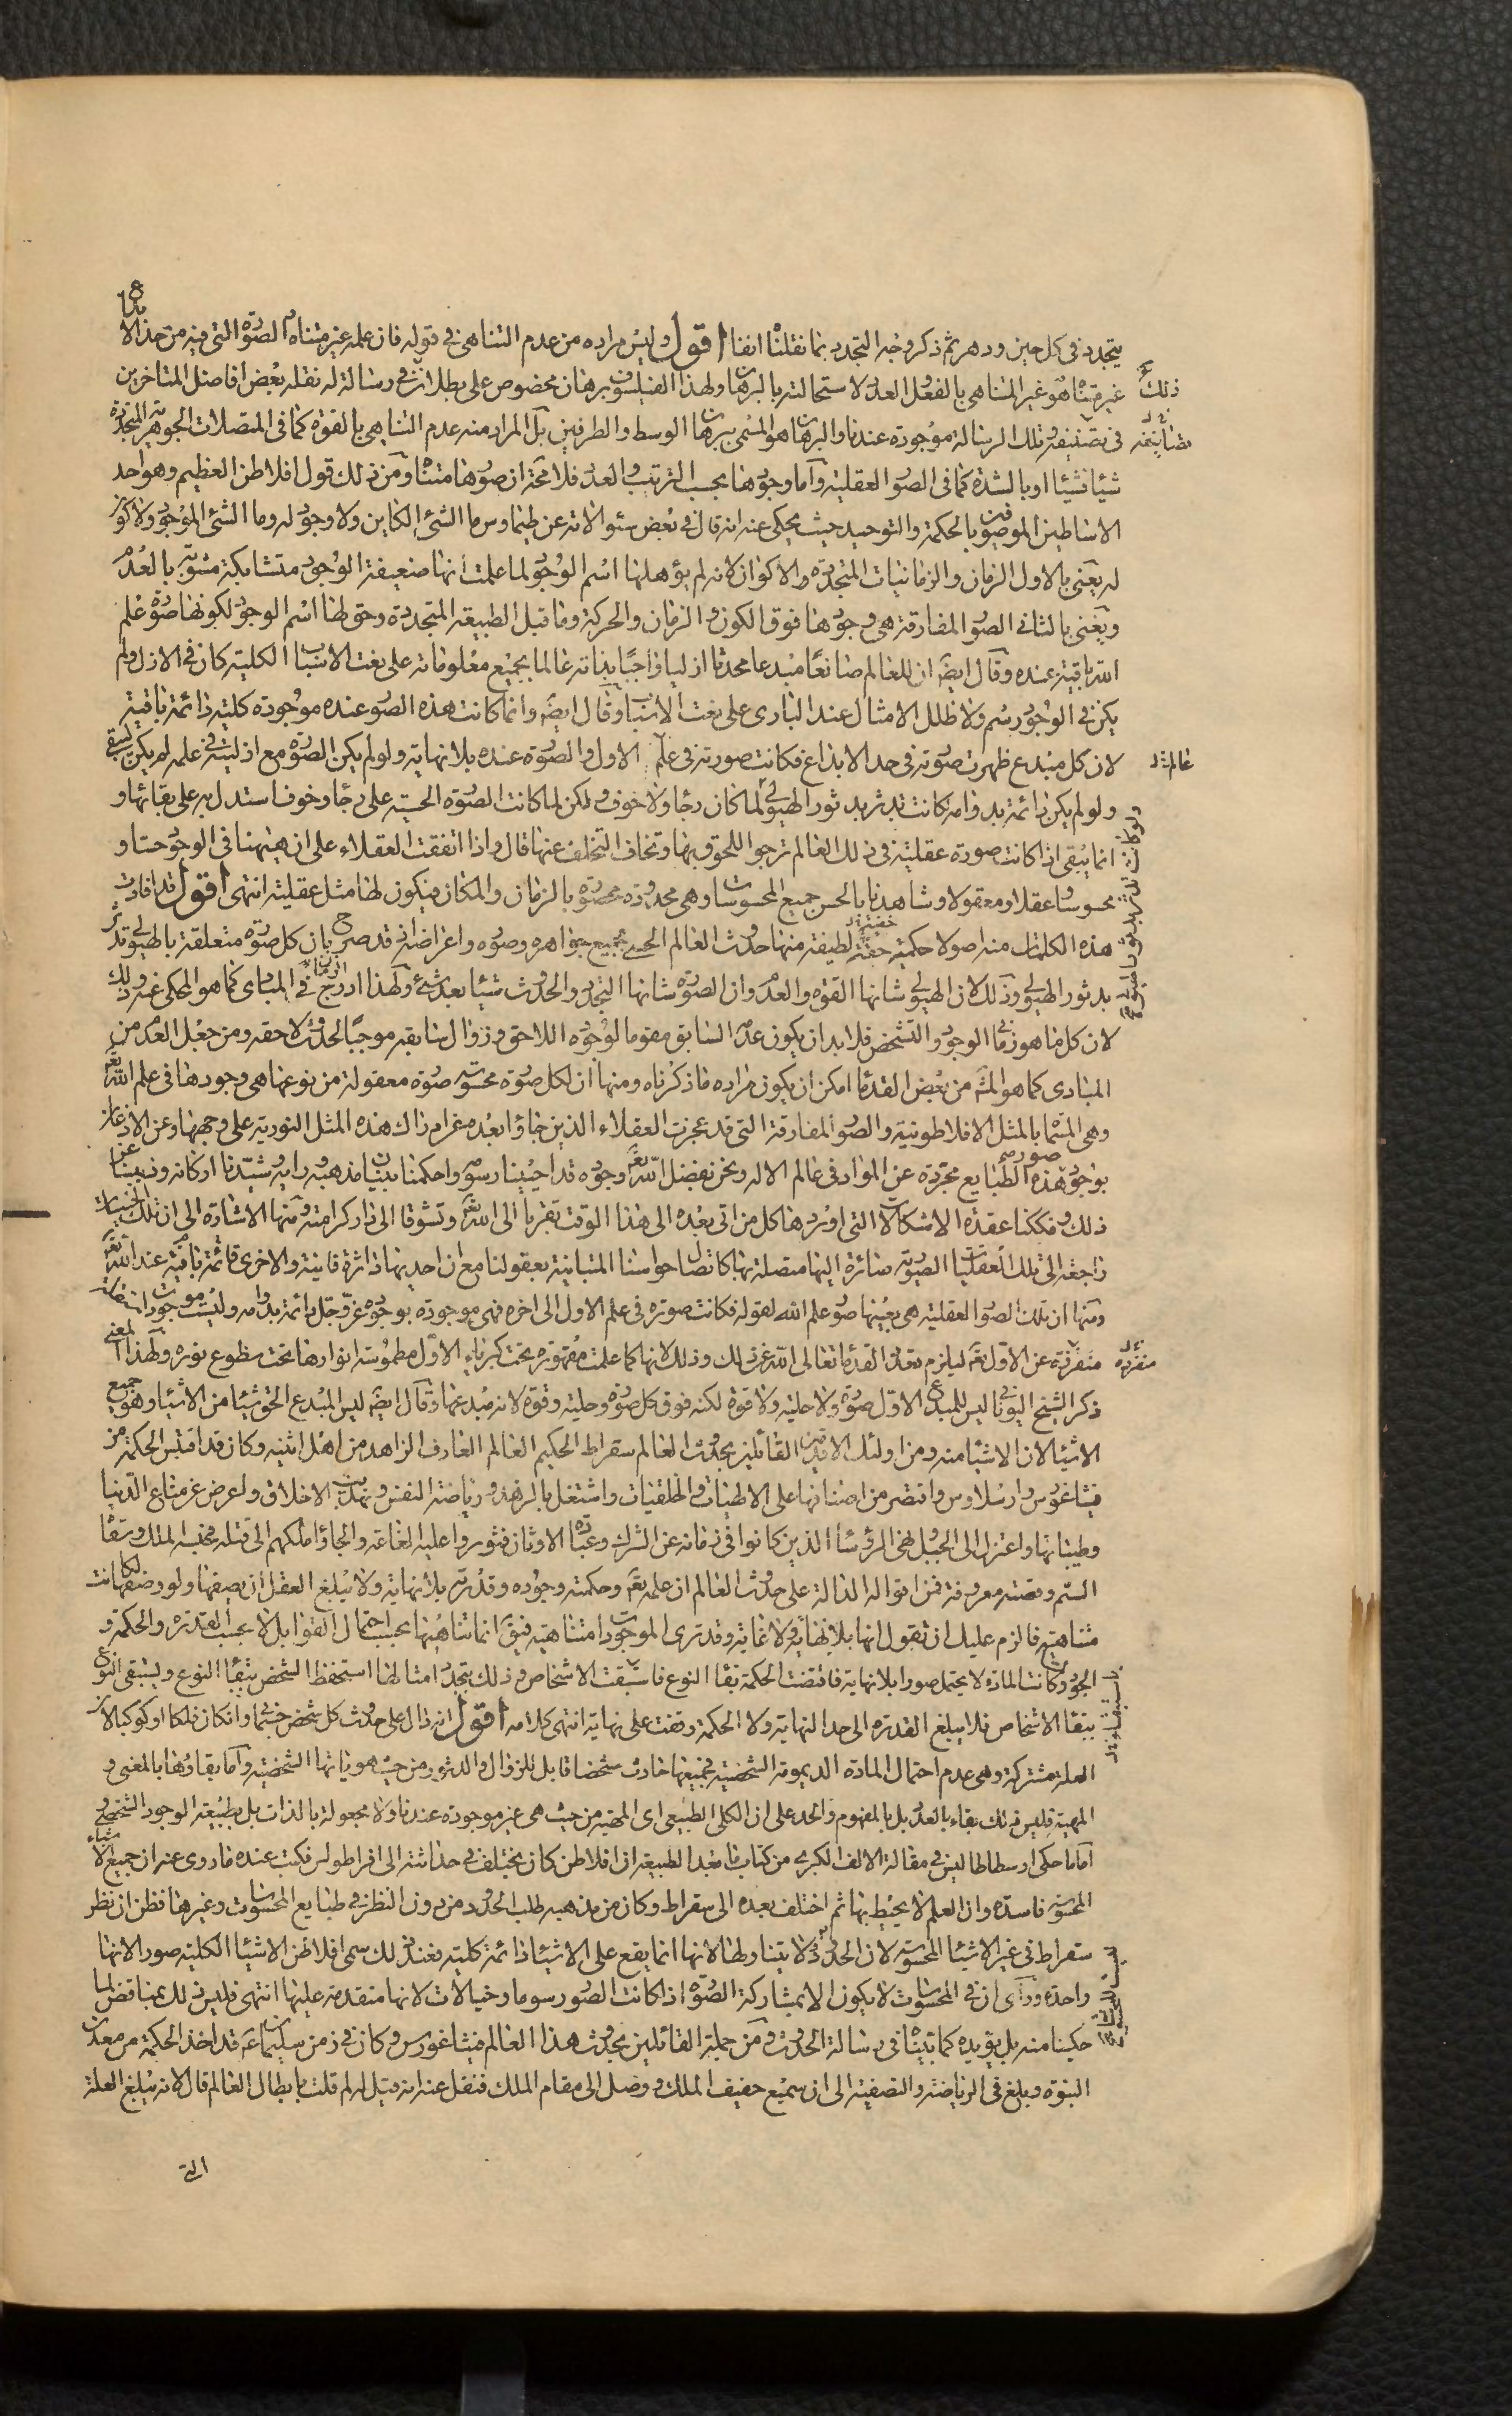 يتجدد في كل حين ودهر ثم ذكر وجه التجدد بما نقلناه انفا اقول وليس مراده من عدم التناهي في قوله فان علمه غير متناه الصورة التي فيه من حد الا
غير متناه هو غير المتناهي بالفعل العدد لاستحالته بالبرهان ولهذا الفيلسوف برهان مخصوص على بطلانه في رسالة له نقله بعض افاضل المتاخرين
ذلك
في تصنيفه تلك الرسالة موجودة عندنا والبرهان هو المسمى ببرهان الوسط والطرفين بل المراد منه عدم التناهي بالقوة كما في المتصلات الجوهرية المتجددة
شيئا فشيئا او بالشدة كما في الصور العقلية واما وجودها بحسب الترتيب والعدد فلا محة ان صورها متناه ومن ذلك قول افلاطن العظيم وهو احد
الاساطين الموصوفين بالحكمة والتوحيد حيث يحكى عنه انه قال في بعض سئوالاته عن طيماوس ما الشئ الكاين ولا وجود له وما الشئ الموجود ولا كون
له يعني بالاول الزمان والزمانيات المتجددة والاكوان لانه لم يؤهلها اسم الوجود لما علمت انها ضعيفة الوجود متشابكة مشوبة بالعدم
ويعني بالثاني الصور المفارقة هي وجودها فوق الكون والزمان والحركة وما قبل الطبيعة المتجددة وحق لها اسم الوجود لكونها صورة علم
الله باقية عنده وقال ايضا ان للعالم صانعا مبدعا محدثا ازليا واجبا بذاته عالما بجميع معلوماته على نعت الاسباب الكلية كان في الازل ولم
يكن في الوجود رسم ولا ظلل الا مثال عند الباري على نعت الاسباب وقال ايضا وانما كانت هذه الصور عنده موجودة كلية دائمة باقية
لان كل مبدع ظهرت صورته في حد الابداع فكانت صورته في علم الاول والصورة عنده بلا نهاية ولو لم يكن الصورة مع ازليته في علمه لم يكن ليبقى
ولو لم يكن دائمة بدوامه كانت تدثر بدثور الهيولى لما كان رجاء ولا خوف ولكن لما كانت الصورة الحسية على رجاء وخوف استدل به على بقائها و
انما يبقى اذا كانت صورة عقلية في ذلك العالم ترجوا اللحوق بها وتخاف التخلف عنها قال واذا اتفقت العقلاء على ان هيهنا في الوجود حسا و
محسوسا وعقلا ومعقولا وشاهدنا بالحس جميع المحسوسات وهي محدودة محصورة بالزمان والمكان فيكون لها مثل عقلية انتهى اقول قد افادت
هذه الكلمات منه اصولا حكمية حقة لطيفة منها حدوث العالم الحسي بجميع جواهره وصوره واعراضه فانه قد صرح بان كل صورة متعلقة بالهيولى تدثر
بدثور الهيولى وذلك لان الهيولى شانها القوة والعدم وان الصورة شانها التجدد والحدوث شيئا بعد شئ ولهذا ادرج الزمان في المبادى كما هو المحكي عنه وذلك
لان كل ما هو زماني الوجود والتشخص فلا بد ان يكون عدم السابق مقوما لوجوده اللاحق وزوال سابقه موجبا لحدوث لاحقه ومن جعل العدم من
المبادى كما هو المش من بعض القدماء امكن ان يكون مراده ما ذكرناه ومنها ان لكل صورة محسوسة صورة معقولة من نوعها هي وجودها في علم الله تع
وهي المسماة بالمثل الافلاطونية والصور المفارقة التي قد عجزت العقلاء الذين جاؤا بعده عن ادراك هذه المثل النورية على وجهها وعن الاذعان
بوجود صور هذه الطبايع مجردة عن المواد في عالم الاله ونحن بفضل الله تع وجوده قد احيينا رسومه واحكمنا بنيان مذهبه ورايه وشيدنا اركانه وذببنا عن
ذلك وفككنا عقدة الاشكالات التي اوردها كل من اتى بعده الى هذا الوقت تقربا الى الله تع وتشوقا الى دار كرامته ومنها الاشارة الى ان تلك الحسيات
راجعة الى تلك العقليات الصورية صائرة اليها متصلة بها كاتصال حواسنا المتباينة بعقولنا مع ان احديهما داثرة فانية والاخرى قائمة باقية عند الله تع
ومنها ان تلك الصور العقلية هي بعينها صور علم الله لقوله فكانت صورته في علم الاول الى اخره فهي موجودة بوجوده عز وجل دائمة بدوامه وليست موجودات
متفرقة عن الاول تع ليلزم تعدد القدماء تعالى الله عن ذلك وذلك لانها كما علمت مقهورة تحت كبرياء الاول مطموسة انوارها تحت سطوع نوره ولهذا المعنى
ذكر الشيخ اليوناني ليس للمبدع الاول صورة ولا حلية ولا قوة لكنه فوق كل صورة وحلية وقوة لانه مبدعها وقال ايضا ليس المبدع الحق شيئا من الاشياء وهو جميع
الاشياء لان الاشياء منه ومن اولئك الاقدمين القائلين بحدوث العالم سقراط الحكيم العالم العارف الزاهد من اهل اثنيه وكان قد اقتبس الحكمة من
فيثاغورس وارسلاوس واقتصر من اصنافها على الالهيات والخلقيات واشتغل بالزهد ورياضة النفس وتهذيب الاخلاق واعرض عن متاع الدنيا
وطيباتها واعتزل الى الجبل ونهى الرؤساء الذين كانوا في زمانه عن الشرك وعبادة الاوثان فثوروا عليه الغاغة والجاؤا ملكهم الى قتله فحبسه الملك وسقاه
السم وقصته معروفة فمن اقواله الدالة على حدوث العالم ان علمه تع وحكمته وجوده وقدرته بلا نهاية ولا يبلغ العقل ان يصفها ولو وصفها لكانت
متناهية فالزم عليك ان تقول انها بلا نهاية ولا غاية وقد ترى الموجودات متناهية فيق انما تناهيها بحسب احتمال القوابل لا بحسب القدرة والحكمة و
الجود وكانت المادة لا يحتمل صورا بلا نهاية فاقتضت الحكمة بقاء النوع فاستبقت الاشخاص وذلك بتجدد امثالها استحفظ الشخص ببقاء النوع وليستبقي النوع
ببقاء الاشخاص فلا يبلغ القدرة الى حد النهاية ولا الحكمة وقفت على نهاية انتهى كلامه اقول انه دال على حدوث كل شخص جسماني وان كان فلكا او كوكبا لان
العلة مشتركة وهي عدم احتمال المادة الديمومة الشخصية فجميعها حادث شخصا قابل للزوال والدثور من حيث هوياتها الشخصية واما بقاؤها بالمعنى و
المهية فليس ذلك بقاء بالعدد بل بالمفهوم والحد على ان الكلي الطبيعي اى المهية من حيث هي غير موجودة عندنا ولا مجعولة بالذات بل بطبيعة الوجود الشخصي و
اما ما حكى ارسطاطاليس في مقالة الالف الكبرى من كتاب ما بعد الطبيعة ان افلاطن كان يختلف في حداثته الى اقراطولس فكتب عنده ما روى عنه ان جميع الاشياء
المحسوسة فاسدة وان العلم لا يحيط بها ثم اختلف بعده الى سقراط وكان من مذهبه طلب الحدود من دون النظر في طبايع المحسوسات وغيرها فظن ان نظر
سقراط في غير الاشياء المحسوسة لان الحدود لا يتناولها لانها انما يقع على الاشياء دائمة كلية فعند ذلك سمى افلاطن الاشياء الكلية صورا لانها
واحدة وراى ان في المحسوسات لا يكون الا بمشاركة الصورة اذا كانت الصور رسوما وخيالات لانها متقدمة عليها انتهى فليس ذلك بمناقض لما
حكينا منه بل يؤيده كما بيناه في رسالة الحدوث ومن جملة القائلين بحدوث هذا العالم فيثاغورس وكان في زمن سليمان ع قد اخذ الحكمة من معدن
النبوة وبلغ في الرياضة والتصفية الى ان سميع حفيف الملك ووصل الى مقام الملك فنقل عنه انه قيل له لم قلت بابطال العالم قال لانه يبلغ العلة
التي